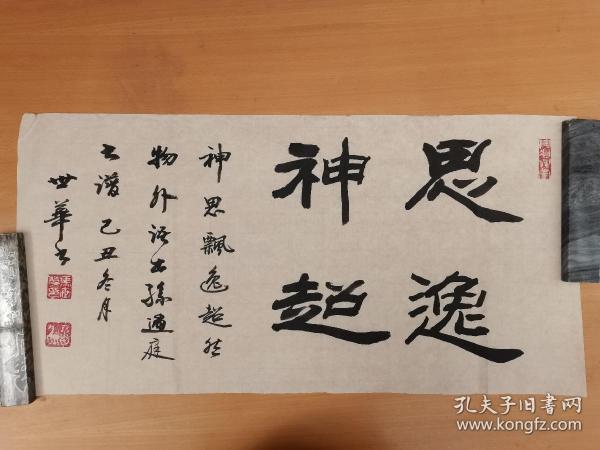 思逸
神超
神思飘逸超然
物外语出孫過庭
书谱己丑冬月
世華书
孔夫子旧书网
www.kongfz.com